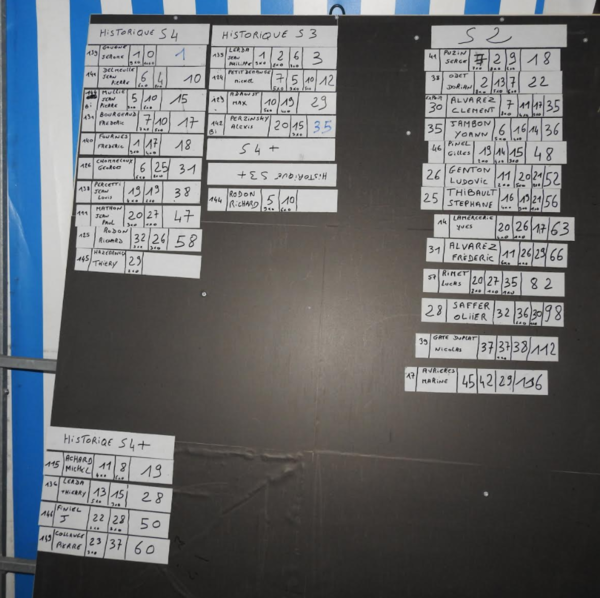 HISTORIQUE S4
139 1 0 1
144 DELMEULLE JEAN PIERRE 6 4 10
MULLIE JEAN PIERRE 5 10 15
134 BOURGEAUD FREDERIC 7 10 17
140 FOURNET FREDERIC 1 17 18
126 GEORGES 6 25 31
138 PERCETTI JEAN LOUIS 19 19 38
MATHON JEAN PAUL 20 27 47
125 RODON RICHARD 32 26 58
145 THIERY 29
HISTORIQUE S3
LERDA JEAN PHILIPPE 1 2 6 3
PETITDEMANGE MICHEL 7 5 10 12
MAX 10 19 29
142 Bi PERZINSKY ALEXIS 20 15 35
S4 +
HISTORIQUE S3+
144 RODON RICHARD 5 10
S2
41 PUZIN SERGE 7 2 9 18
38 ODET DORIAN 2 13 7 22
30 ALVAREZ CLEMENT 7 11 17 35
35 JAMBON YOANN 6 16 14 36
46 PINEL Gilles 19 14 15 48
26 GENTON LUDOVIC 11 20 21 52
25 THIBAULT STEPHANE 16 19 21 56
14 LAMERCERIE YVES 20 26 17 63
31 ALVAREZ FREDERIC 11 26 29 66
57 RIMET LUCAS 20 27 35 82
28 SAFFER OLIIER 32 36 30 98
39 GATE DUPLAT NICOLAS 37 37 38 112
17 AURIERES MARINE 45 42 29 116
HISTORIQE S4+
115 ACHARD MICHEL 11 8 19
136 LERDA THIERRY 13 15 28
146 FINIEL J 22 28 50
149 COLLANGE PIERRE 23 37 60